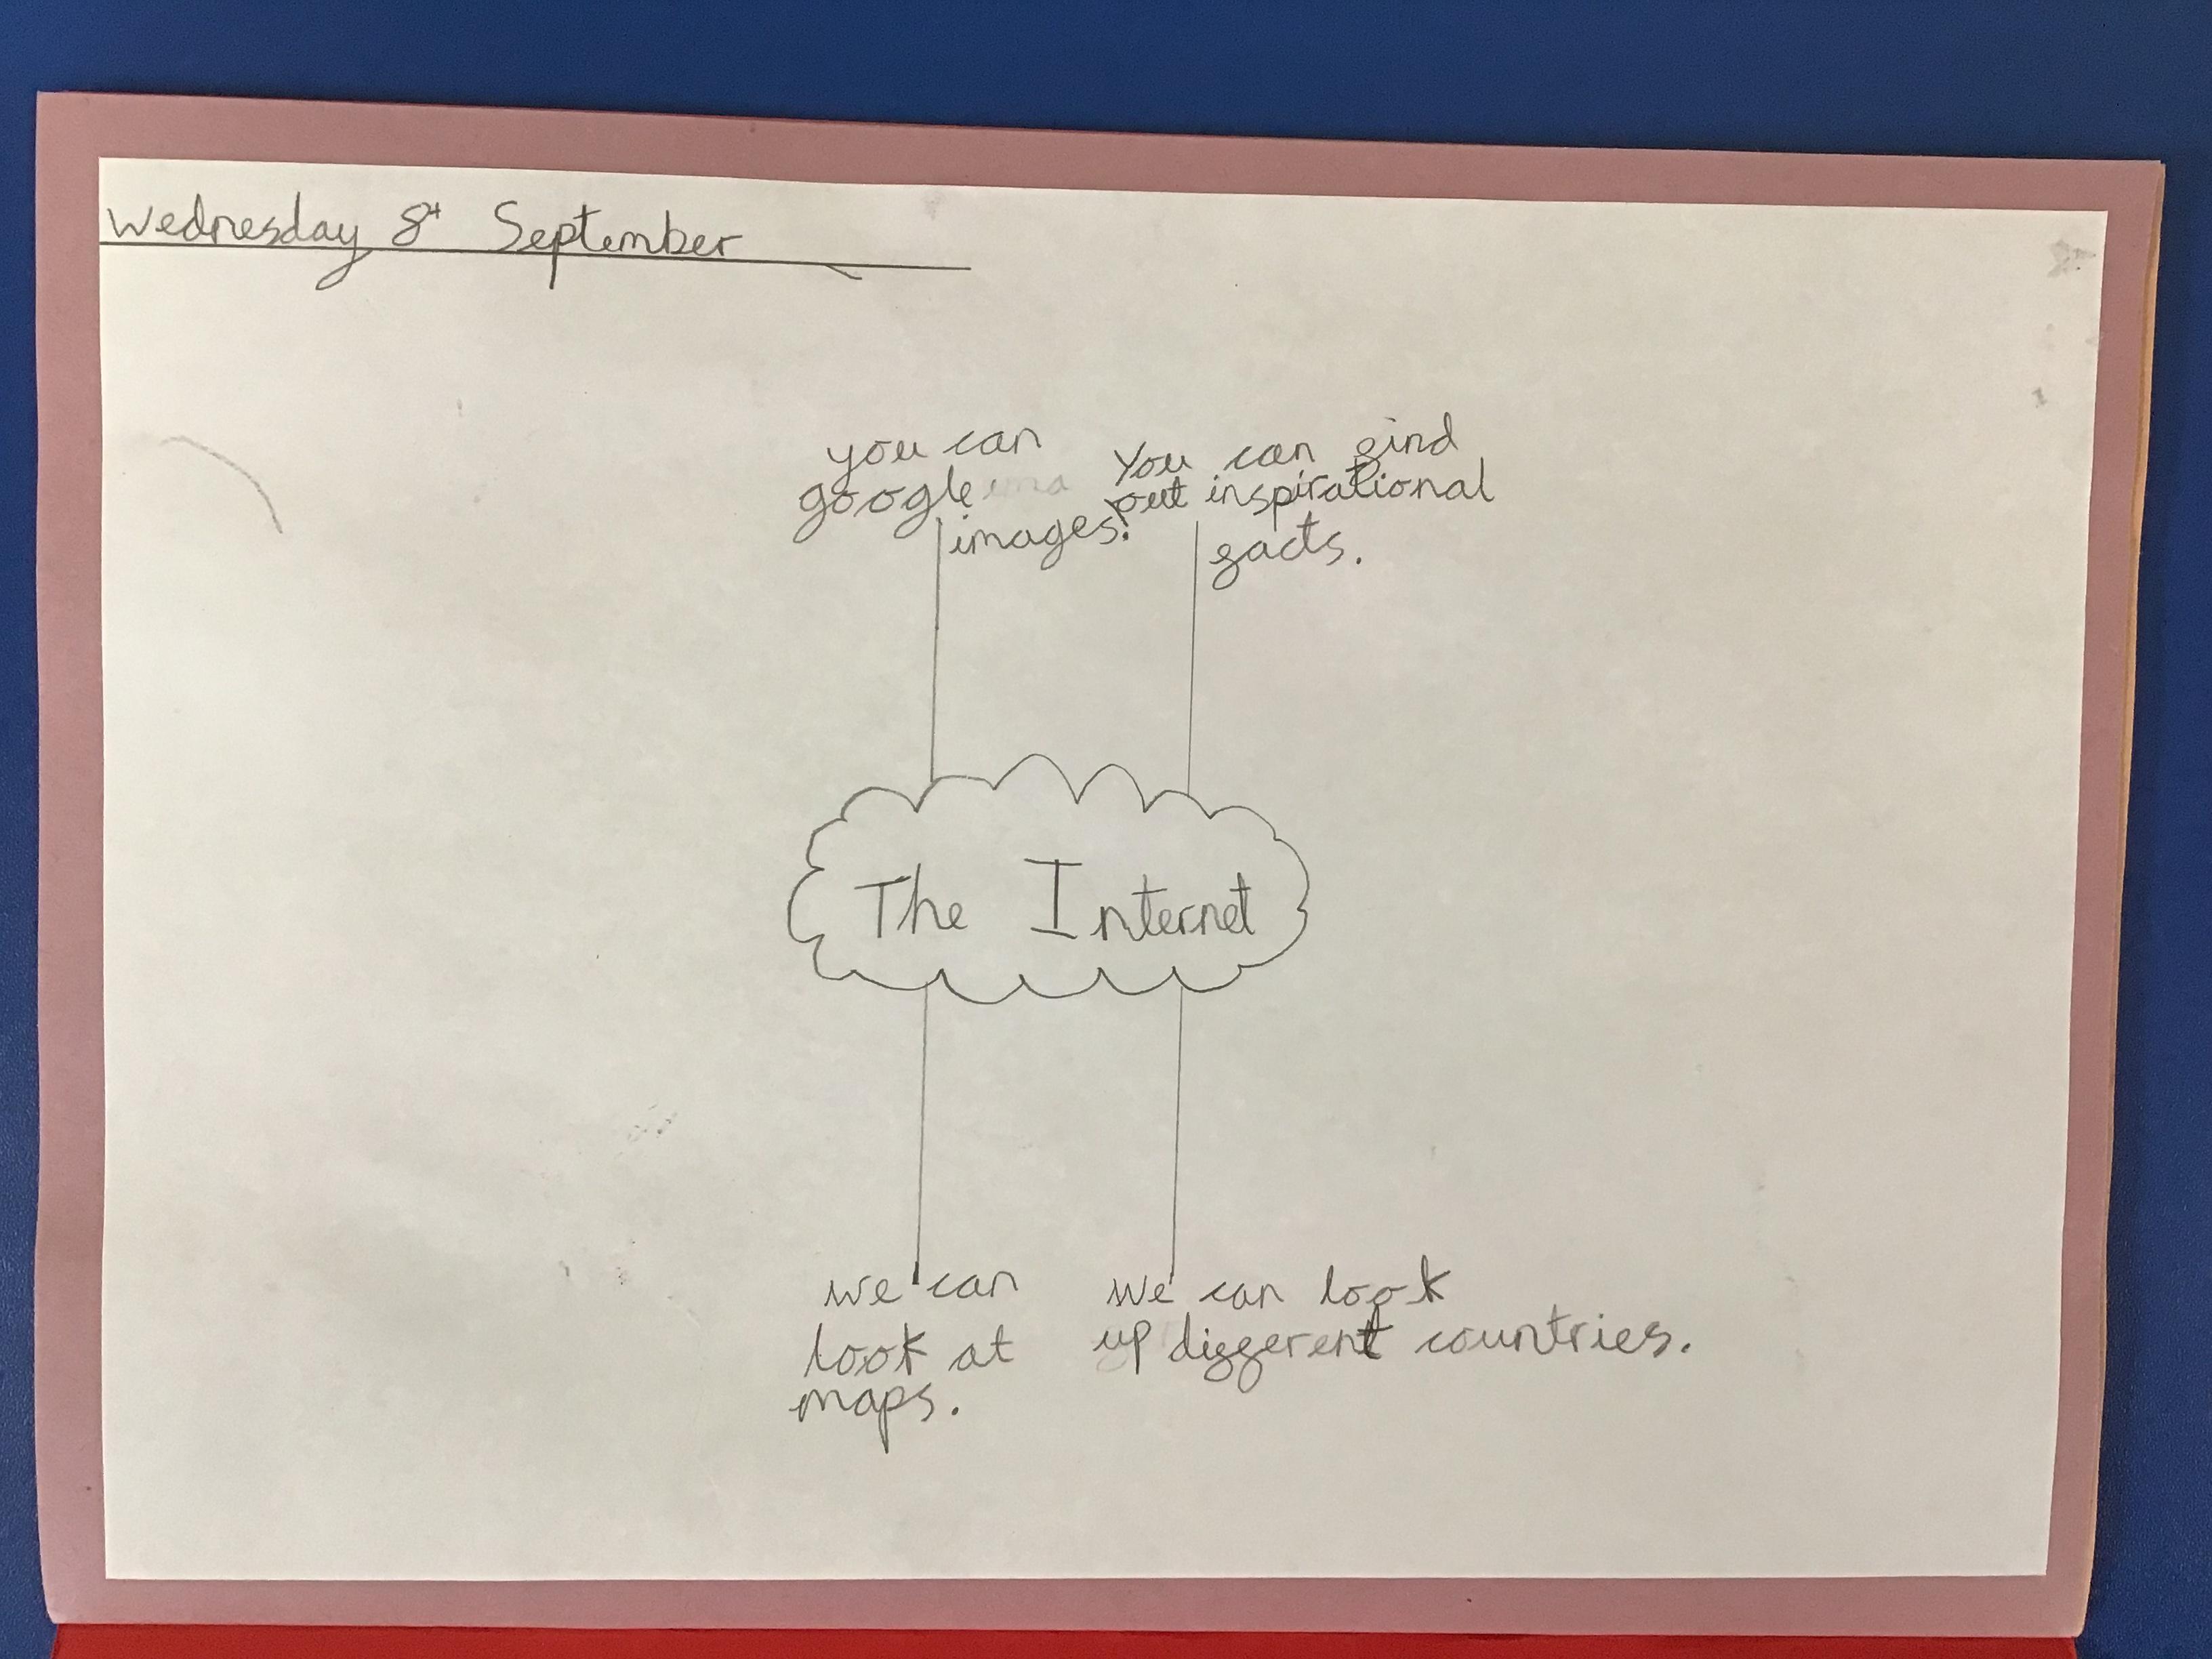 Wednesday 8th September
you can
google ima
images.
You can find
out inspirational
facts.
The Internet
we can
look at
maps.
we can look
up different countries.